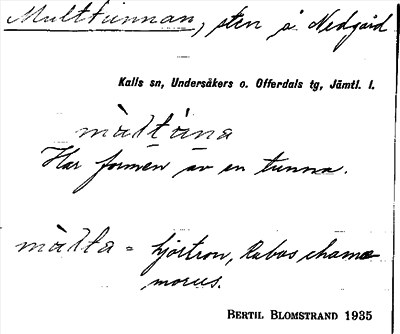 Multtunnan, sten å Nedgård
Kalls sn, Undersåkers o. Offerdals tg, Jämtl. l.
Har formen av en tunna.
= hjortron, Rubus chamæ
morus.
BERTIL BLOMSTRAND 1935